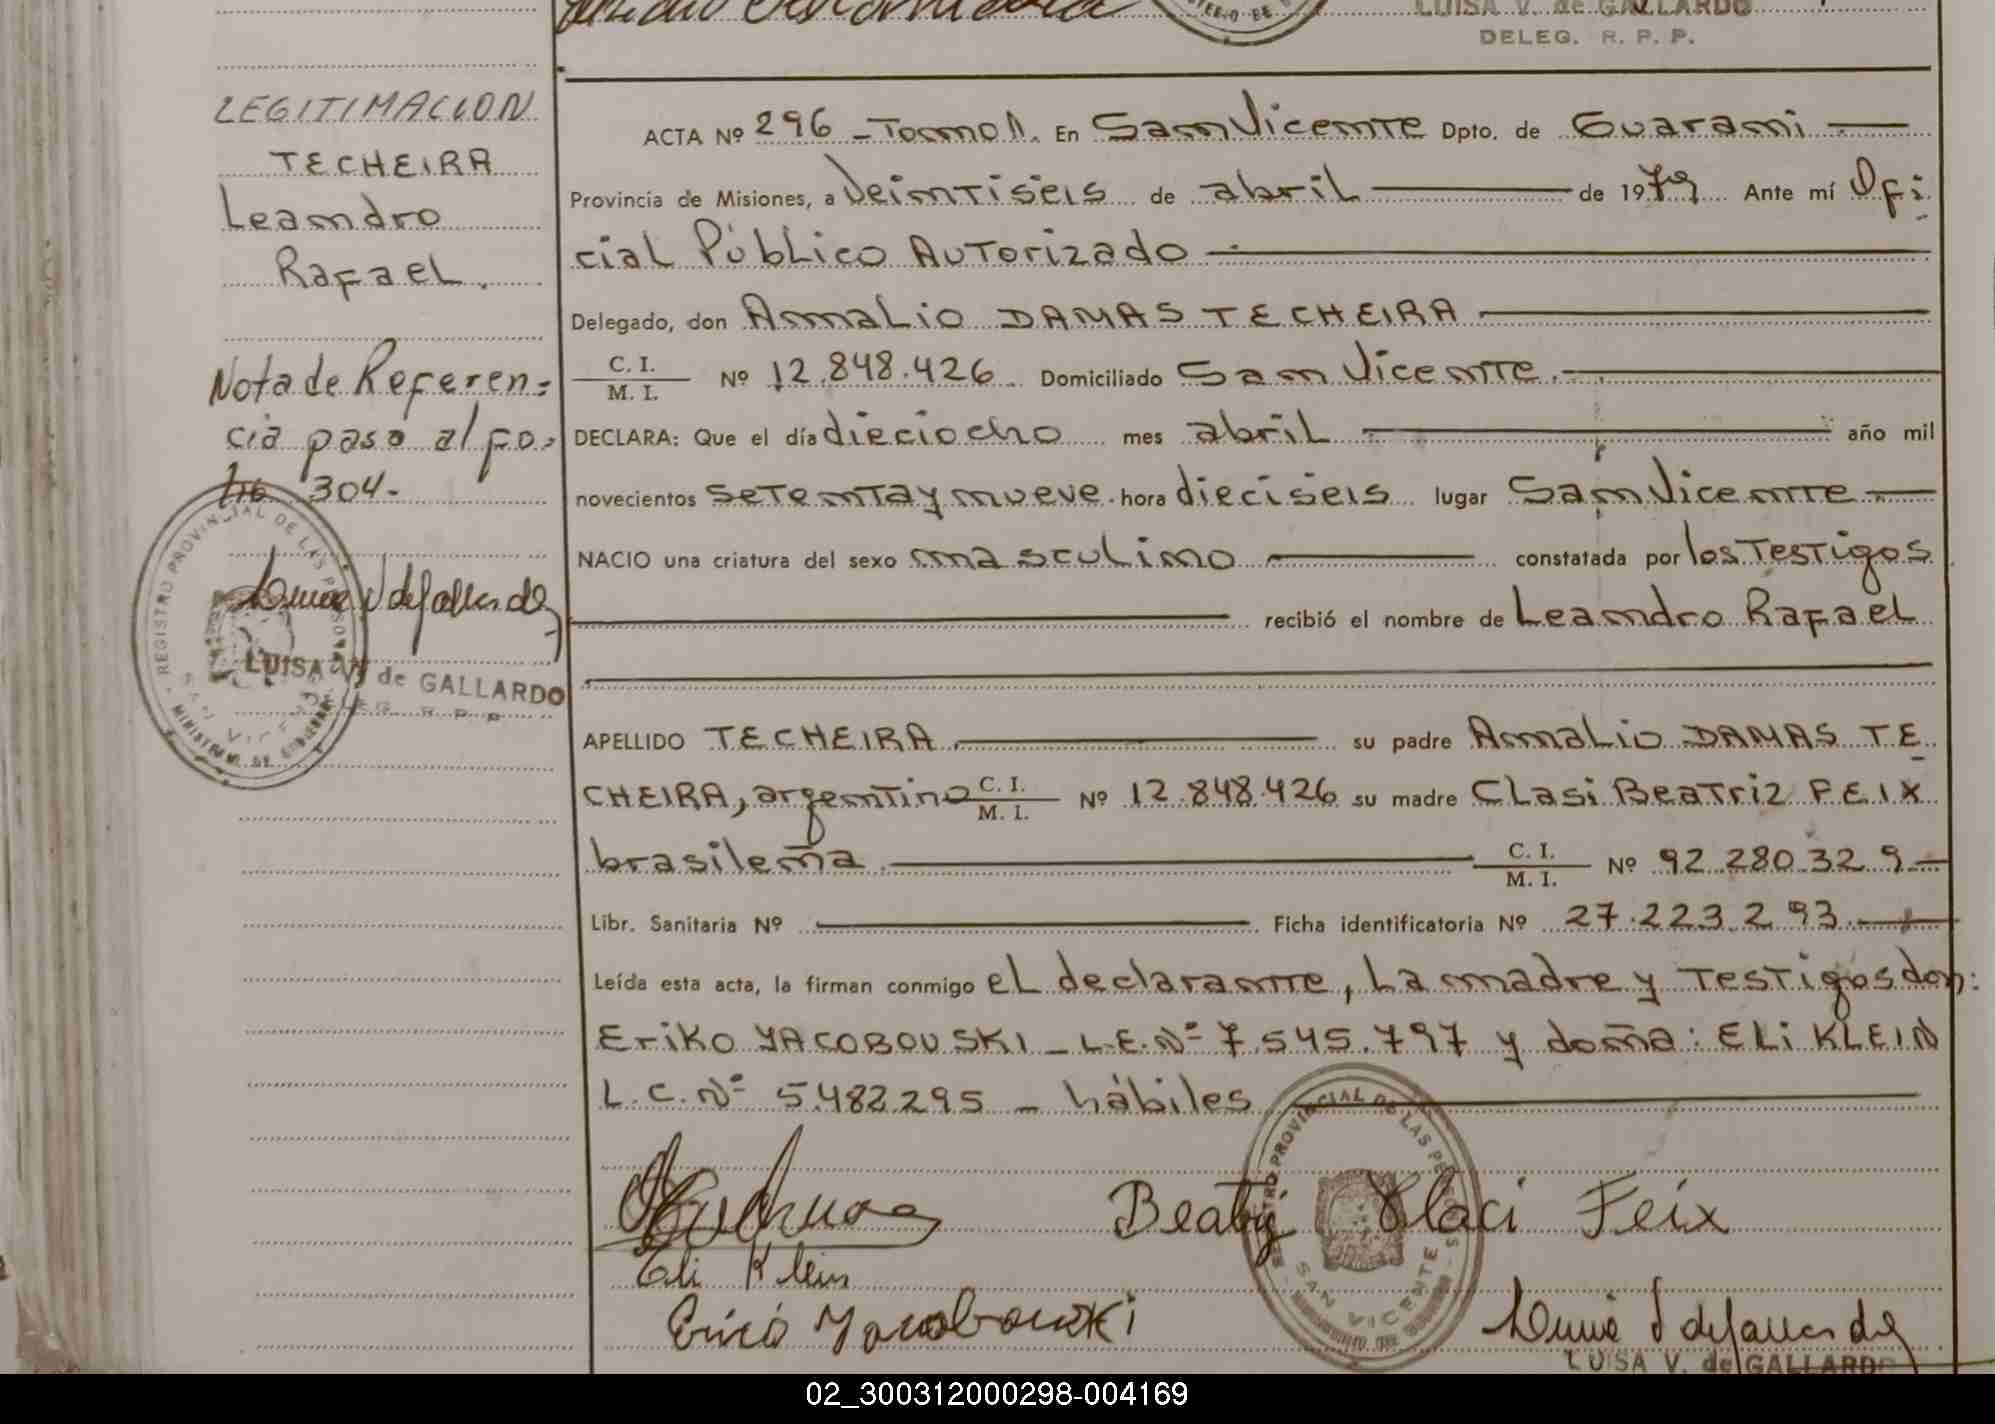 LUISA V. de GALLARDO
DELEG. R. P. P.
LEGITIMACION
TECHEIRA
Leandro
Rafael.
Nota de Referen=
cia paso al fo=
lio 304-
REGISTRO PROVINCIAL DE LAS PERSONAS
SAN VICENTE
LUISA V. de GALLARDO
DELEG. R. P. P.
ACTA Nº 296 - Tomo II. En San Vicente Dpto. de Guarani
Provincia de Misiones, a Veintiseis de abril de 1979 Ante mí Ofi
cial Público Autorizado
Delegado, don Amalio DAMAS TECHEIRA
C. I.
M. I. Nº 12.848.426 Domiciliado San Vicente.
DECLARA: Que el día dieciocho mes abril año mil
novecientos setenta y nueve. hora dieciseis lugar San Vicente
NACIO una criatura del sexo masculino constatada por los testigos
recibió el nombre de Leandro Rafael
APELLIDO TECHEIRA su padre Amalio DAMAS TE
CHEIRA, argentino C. I. M. I. Nº 12.848.426 su madre Clasi Beatriz FEIX
brasileña. C. I. M. I. Nº 92.280.329.-
Libr. Sanitaria Nº Ficha identificatoria Nº 27.223.293.
Leída esta acta, la firman conmigo el declarante, la madre y testigos don:
Eriko YACOBOUSKI - L.E.Nº 7.545.797 y doña: ELI KLEIN
L.C.Nº 5.482.295 - hábiles
REGISTRO PROVINCIAL DE LAS PERSONAS
SAN VICENTE
Beatriz Claci Feix
Eli Klein
Erico Yacobowski
LUISA V. de GALLARDO
02_300312000298-004169